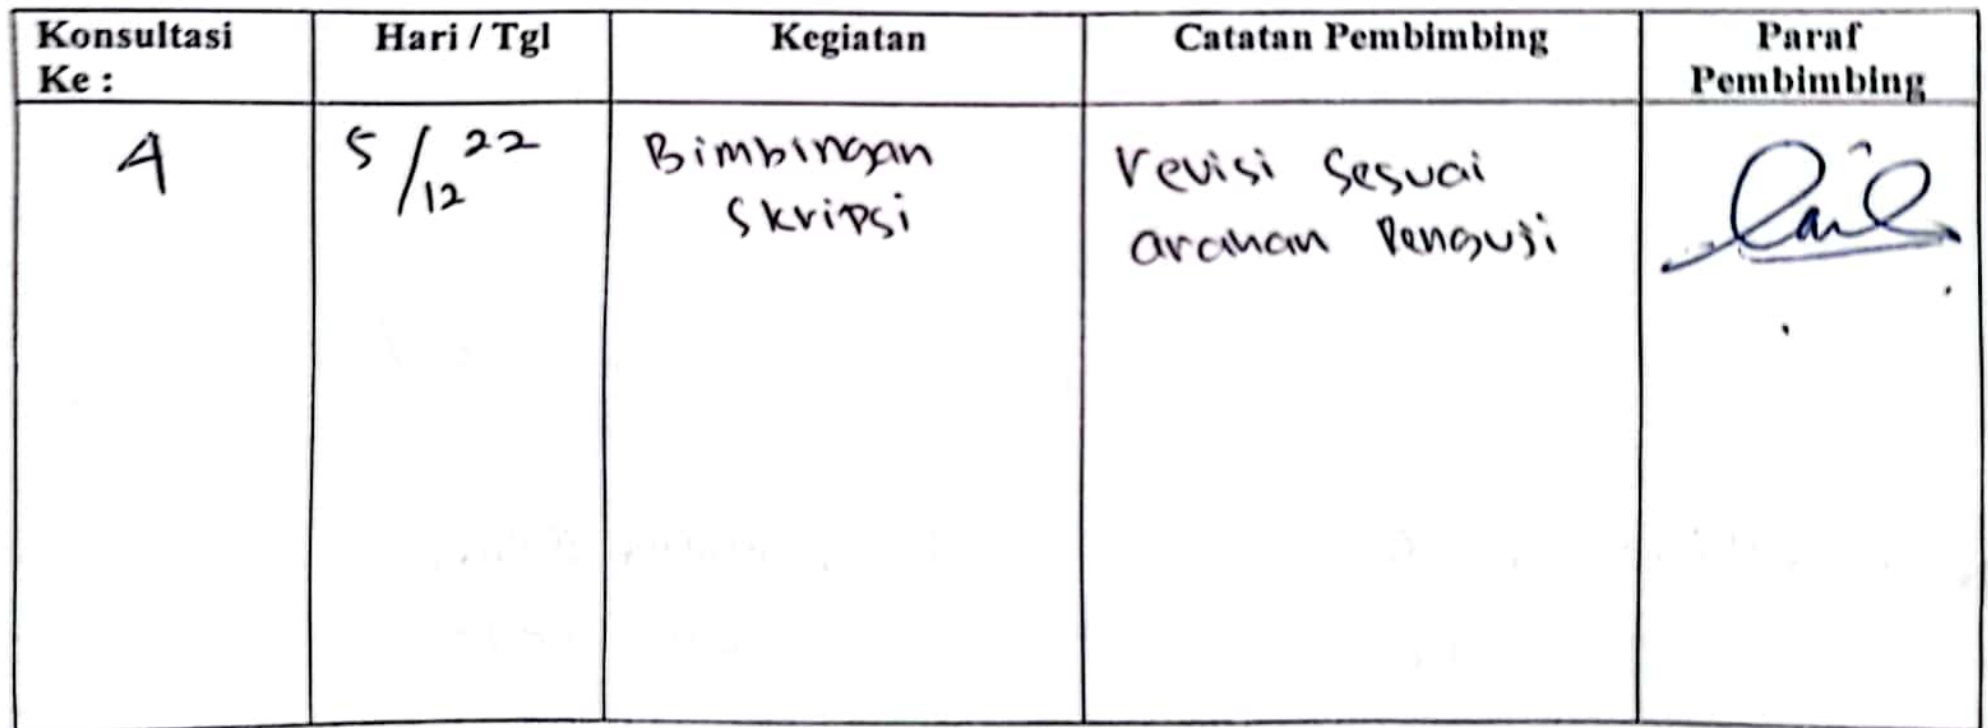 Konsultasi Ke :
Hari / Tgl
Kegiatan
Catatan Pembimbing
Paraf Pembimbing
4
5/12 22
Bimbingan
Skripsi
revisi sesuai
arahan Penguji